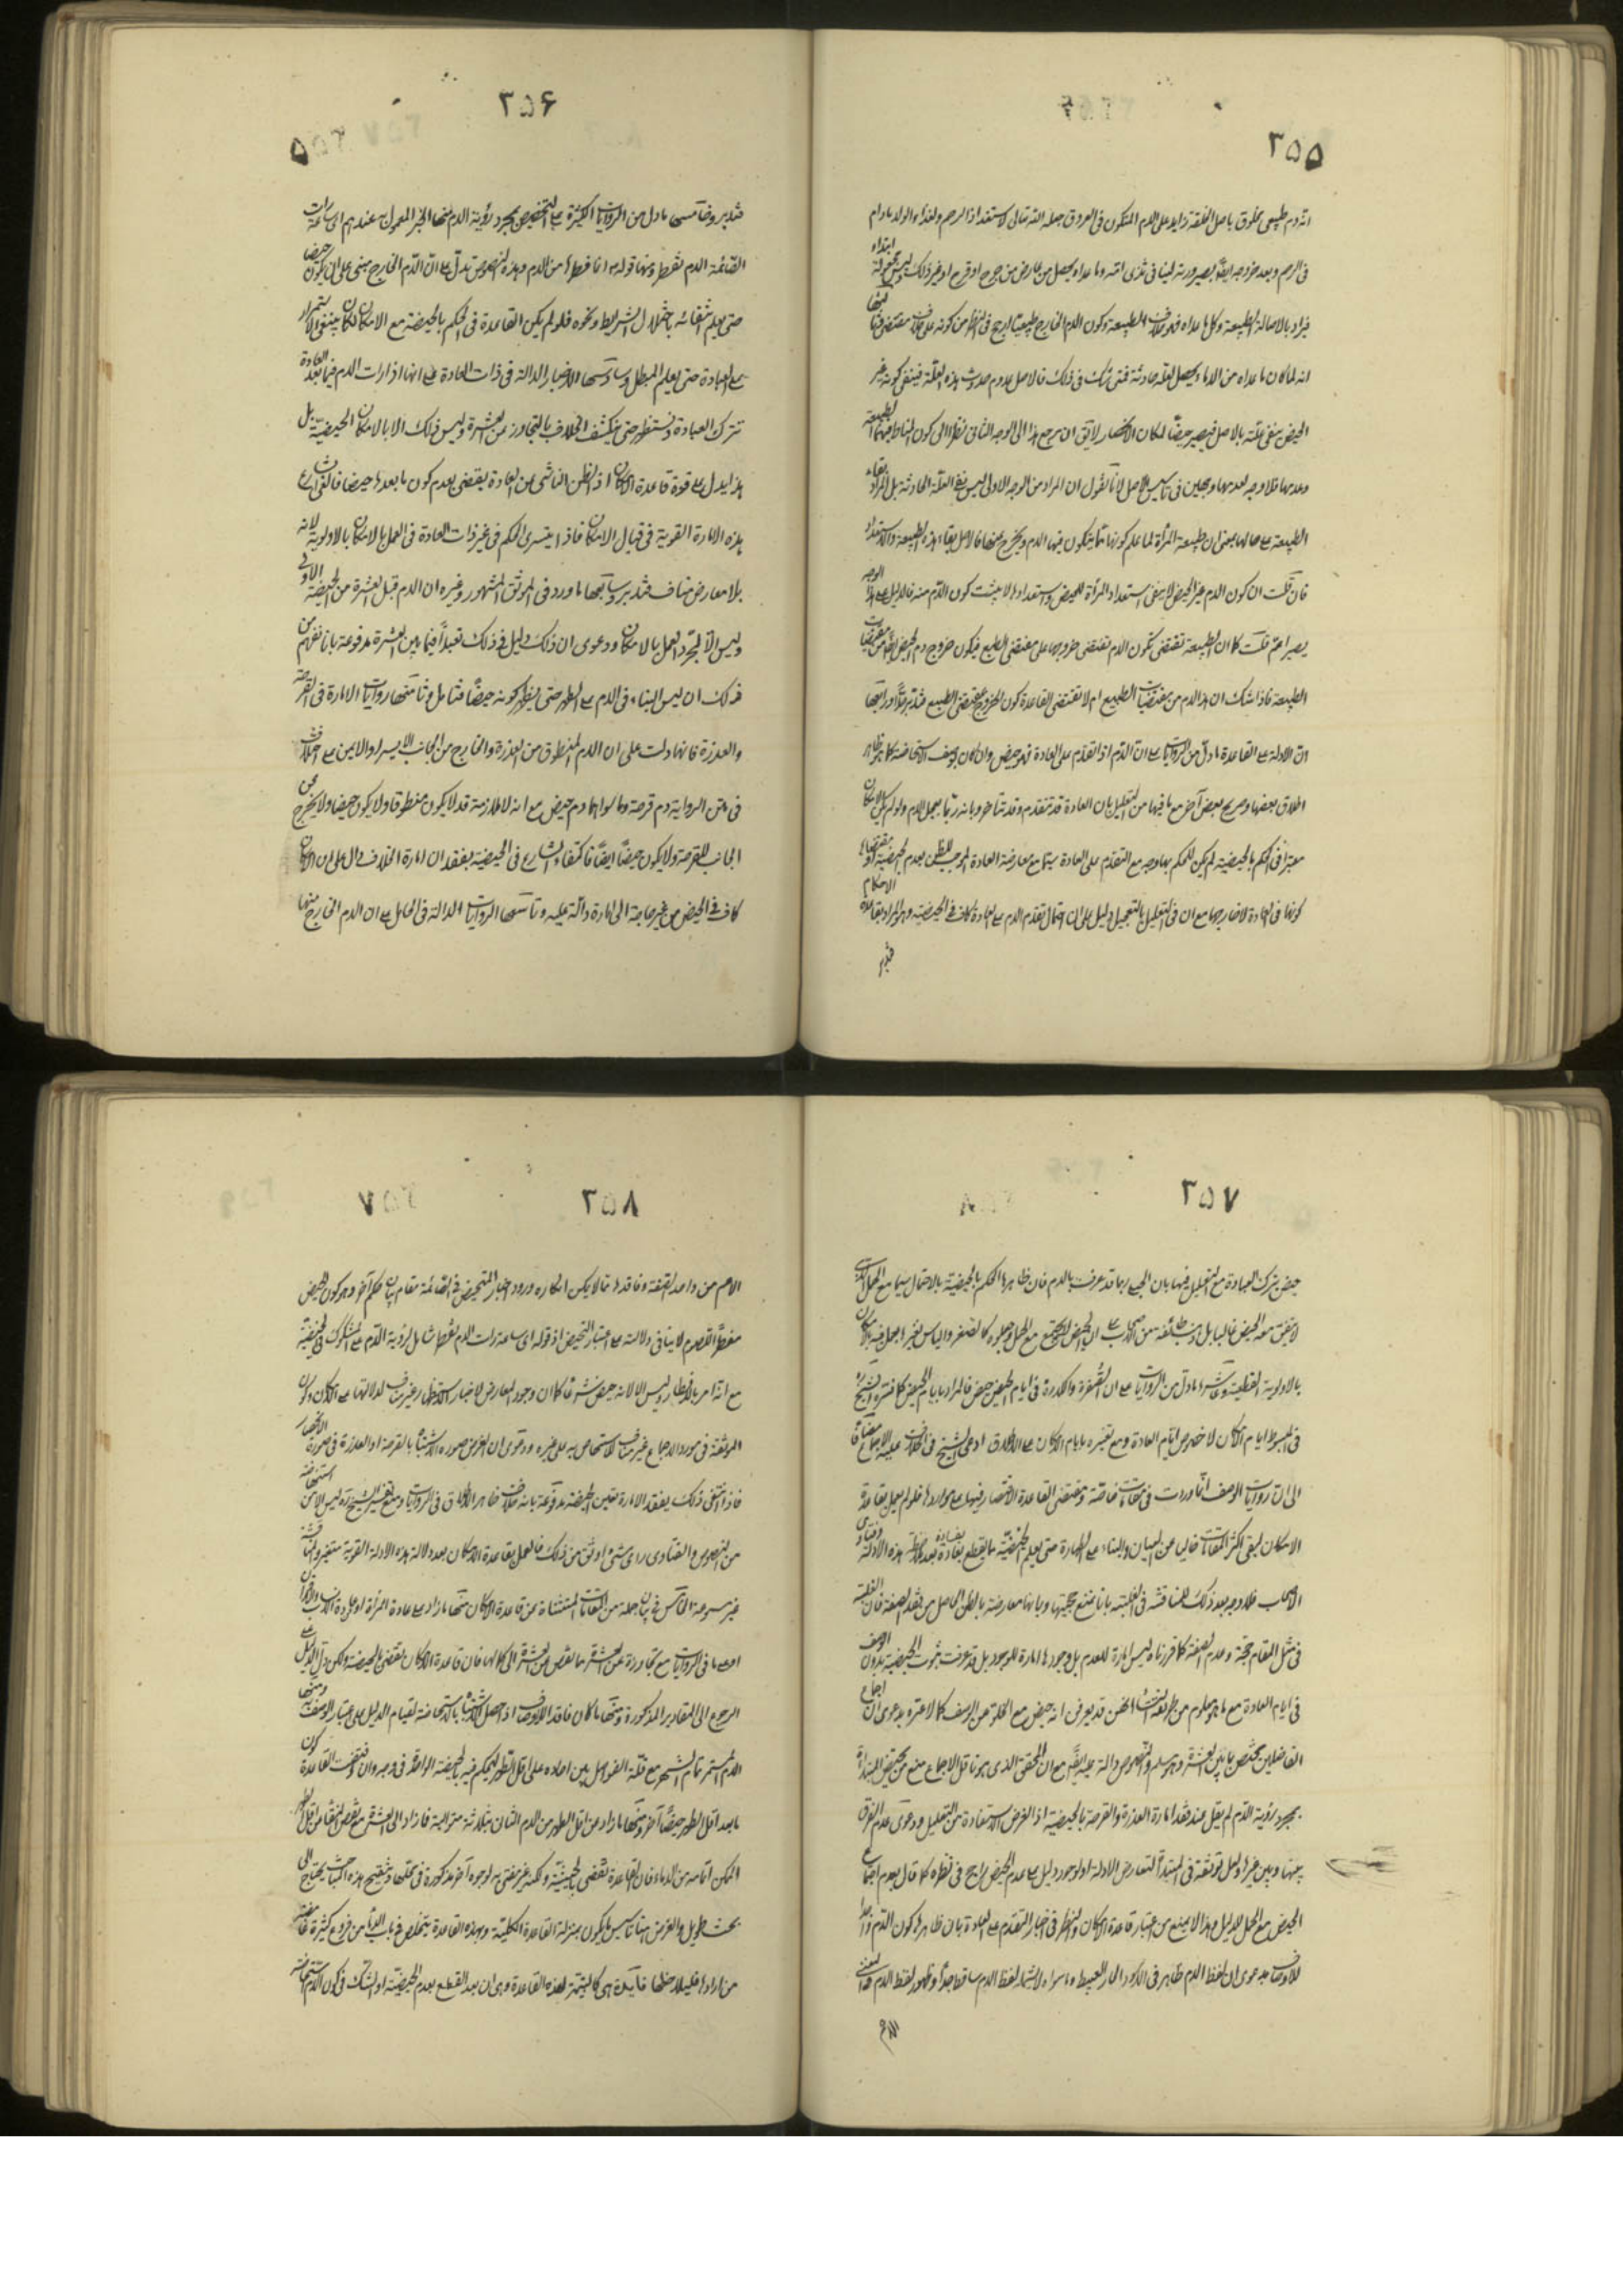 ٢٥٥
انه دم طبيعي مخلوق باصل الخلقة زايد على الدم المتكون في العروق جعله الله تعالى لاستعداد الرحم ولغذاء الولد مادام
في الرحم وبعد خروجه ايضا بصيرورته لبنا في ثدي امه وما عداه يحصل من عارض من جرح او قرح او غير ذلك وليس مجعولة ابتداء
فيراد بالاصالة الطبيعة وكل ما عداه فهو خلاف الطبيعة وكون الدم الخارج طبيعيا ارجح في النظر من كونه على خلاف مقتضى
انه لما كان ما عداه من الدماء يحصل لعلة حادثة فمتى شك في ذلك فالاصل عدم حدوث هذه العلة فينفى كونه غير
الحيض بنفي علته بالاصل فيصير حيضا لمكان الانحصار لا يقال ان مرجع هذا الى الوجه الثاني نظرا الى كون المناط فيهما الطبيعة
وعدمها فلا وجه لعدهما وجهين في تاسيس الاصل لانا نقول ان المراد من الوجه الاول ليس نفي العلة الحادثة بل المراد بقاء
الطبيعة على حالها بمعنى ان طبيعة المرأة لما علم كونها مما يتكون فيها الدم ويخرج حيضا فالاصل بقاء هذه الطبيعة والاستعداد
فان قلت ان كون الدم غير الحيض لا ينفي استعداد المرأة للحيض واستعدادها لا يثبت كون الدم منه فالدليل على هذا الوجه
يصير اعم قلت كما ان الطبيعة تقتضي تكون الدم تقتضي خروجها على مقتضى الطبع فيكون خروج دم الحيض ايضا من مقتضيات
الطبيعة فاذا شك ان هذا الدم من مقتضيات الطبع ام لا تقتضي القاعدة كون الخروج بمقتضى الطبع فتدبر ورابعها
ان الادلة على القاعدة ما دل من الروايات على ان الدم اذا تقدم على العادة فهو حيض وان كان بوصف الاستحاضة كما هو ظاهر
اطلاق بعضها وصريح بعض آخر مع ما فيها من التعليل بان العادة قد تتقدم وقد تتاخر وبانه ربما يعجل الدم ولو لم يكن الامكان
معتبرا في الحكم بالحيضية لم يكن للحكم بها وجه مع التقدم على العادة سيما مع معارضة العادة الموجب للظن بعدم الحيضية
كونها في العادة لا خارجها مع ان في التعليل بالتعجيل دليل على ان احتمال تقدم الدم على العادة كاف في الحيضية وهو المراد بقاعدة الامكان
فتدبر
٢٥٦
فتدبر وخامسها ما دل من الروايات الكثيرة على التحيض بمجرد رؤية الدم منها الخبر المعمول به عندهم اي ساعة رات
الصائمة الدم تفطر ومنها قوله انما فطرها من الدم وهذه النصوص تدل على ان الدم الخارج مبني على ان يكون حيضا
حتى يعلم انتفائه باختلال الشرايط ونحوه فلو لم يكن القاعدة في الحكم بالحيضة مع الامكان لكان ينبغي الاستمرار
على العبادة حتى يعلم المبطل وسادسها الاخبار الدالة في ذات العادة على انها اذا رات الدم فيما بعد العادة
تترك العبادة وتستظهر حتى ينكشف الخلاف بالتجاوز عن العشرة وليس ذلك الا بالامكان الحيضية بل
هذا يدل على قوة قاعدة الامكان اذ الظن الناشي من العادة يقتضي بعدم كون ما بعدها حيضا فالغى الشارع
هذه الامارة القوية في قبال الامكان فاذا يتسرى الحكم في غير ذات العادة في العمل بالامكان بالاولوية لانه
بلا معارض مناف فتدبر وسابعها ما ورد في الموثق المشهور وغيره ان الدم قبل العشرة من الحيضة الاولى
وليس الا لمجرد العمل بالامكان ودعوى ان ذلك دليل في ذلك تعبدا فيما بين العشرة مدفوعة بانا نفهم من
ذلك ان ليس البناء في الدم على الطهر حتى يظهر كونه حيضا فتامل وثامنها روايات الامارة في القرحة
والعذرة فانها دلت على ان الدم المنطوق من العذرة والخارج من الجانب الايسر او الايمن على اختلاف
في متن الرواية دم قرحة وما سواهما دم حيض مع انه لا ملازمة قد لا يكون منطوقا ولا يكون حيضا ولا يخرج من
الجانب للقرحة ولا يكون حيضا ايضا فاكتفاء الشارع في الحيضية بفقدان امارة الخلاف دال على ان الامكان
كاف في الحيض من غير حاجة الى امارة دالة عليه وتاسعها الروايات الدالة في الحامل على ان الدم الخارج منها
٢٥٧
حيض بترك العبادة مع التعليل فيها بان الحبلى ربما قذفت بالدم فان ظاهرها الحكم بالحيضية بالاحتمال سيما مع الحمل الذي
لا يتفق معه الحيض غالبا بل ذهب طائفة من الاصحاب على ان الحيض لا يجتمع مع الحمل وجعلوه كالصغر والياس
بالاولوية القطعية وعاشرها ما دل من الروايات على ان الصفرة والكدرة في ايام الحيض حيض فالمراد بايام الحيض كما فسره الشيخ
في المبسوط ايام الامكان لا خصوص ايام العادة ومع تفسيره بايام الامكان على الاطلاق ادعى الشيخ في الخلاف عليه الاجماع مضافا
الى ان روايات الوصف انما وردت في مقامات خاصة ومقتضى القاعدة الاقتصار فيها على مواردها فلو لم يعمل بقاعدة
الامكان لبقي اكثر المقامات خاليا عن البيان والبناء على الطهارة حتى يعلم الحيضية مما يقطع بفساده بعد ملاحظة هذه الادلة وفتاوى
الاصحاب فلا وجه بعد ذلك للمناقشة في الغلبة بانا نمنع حجيتها وبانها معارضة بالظن الحاصل من فقد الصفة فان الغلبة
في مثل المقام حجة وعدم الصفة كما قررناه ليس امارة للعدم بل وجودها امارة للوجود بل قد عرفت ثبوت الحيضية بدون الوصف
في ايام العادة مع ما هو معلوم من طريقة النساء انهن قد يعرفن انه حيض مع الخلو عن الوصف كما لا عبرة بدعوى ان اجماع
الفاضلين مختص بما بين العشرة وهو مسلم والنصوص دالة عليه ايضا مع ان المحقق الذي هو ناقل الاجماع منع من تحيض المبتدأة
بمجرد رؤية الدم لم يقل عند فقد امارة العذرة والقرحة بالحيضية اذ الغرض الاستفادة من التعليل ودعوى عدم الفرق
بينها وبين غيرها ولعل توقفه في المبتدأة لتعارض الادلة او لوجود دليل على عدم الحيض راجح في نظره كما قال بعدم اجتماع
الحيض مع الحمل للدليل وهذا لا يمنع من اعتبار قاعدة الامكان والنظر في اخبار التقدم على العادة بان ظاهرها كون الدم واجدا
للاوصاف بدعوى ان لفظ الدم ظاهر في الاسود الحار العبيط وما سواه لا يشمله لفظ الدم ساقط جدا وظهور لفظ الدم في المعنى
الاعم
٢٥٨
الاعم من واجد الصفة وفاقدها مما لا يمكن انكاره وورود اخبار التحيض في الصائمة مقام بيان حكم آخر وهو كون الحيض
مفطرا للصوم لا ينافي دلالته على اعتبار التحيض اذ قوله اي ساعة رات الدم تفطر شامل لرؤية الدم على المشكوك الحيضية
مع انه امر بالافطار وليس الا لانه حيض شرعا كما ان وجود المعارض لاخبار الاستظهار غير مناف لدلالتها على الامكان وكون
الموثقة في مورد الاجماع غير مناف للاستخلاص به على غيره ودعوى ان الغرض صورة الاشتباه بالقرحة او العذرة في صورة الانحصار
فاذا انتفى ذلك بفقد الامارة تعين الحيضة مدفوعة بانه خلاف ظاهر الاطلاق في الروايات ومنع تفسير الشيخ ره ليس الا من
من النصوص والفتاوى راى شيء اوثق من ذلك فالعمل بقاعدة الامكان بعد دلالة هذه الادلة القوية متعين والمناقشة
غير مسموعة الخامس في بيان جملة من المقامات المستثناة من قاعدة الامكان منها ما زاد على عادة المرأة
او على ما في الروايات مع تجاوزه عن العشرة مما نقص عن العشرة الى كمالها فان قاعدة الامكان تقتضي الحيضة ولكن دل الدليل على
الرجوع الى المقادير المذكورة ومنها ما كان فاقد الاوصاف اذا حصل الاشتباه بالاستحاضة لقيام الدليل على اعتبار الوصف فيه ومنها
الدم المستمر تمام الشهر مع قلة الفواصل بين اعداده على اقل الطهر ليحكم فيه بالحيضة الواحدة في وجه وان اقتضت القاعدة كون
ما بعد اقل الطهر حيضا آخر ومنها ما زاد عن اقل الطهر من الدم الثاني بثلاثة متوالية فما زاد الى العشرة مع نقص النقاء من اقل الطهر
الممكن اتمامه من الدماء فان القاعدة تقضي بالحيضية ولكنه غير مفتى به لوجوه آخر مذكورة في محلها وتنقيح هذه المباحث يحتاج الى
بحث طويل والغرض هنا تاسيس ما يكون بمنزلة القاعدة الكلية وبهذه القاعدة يتخلص في باب الدماء من فروع كثيرة
من ارادها فليلاحظها فائدة هي كالتتمة لهذه القاعدة وهي ان بعد القطع بعدم الحيضية او الشك في كون الدم استحاضة